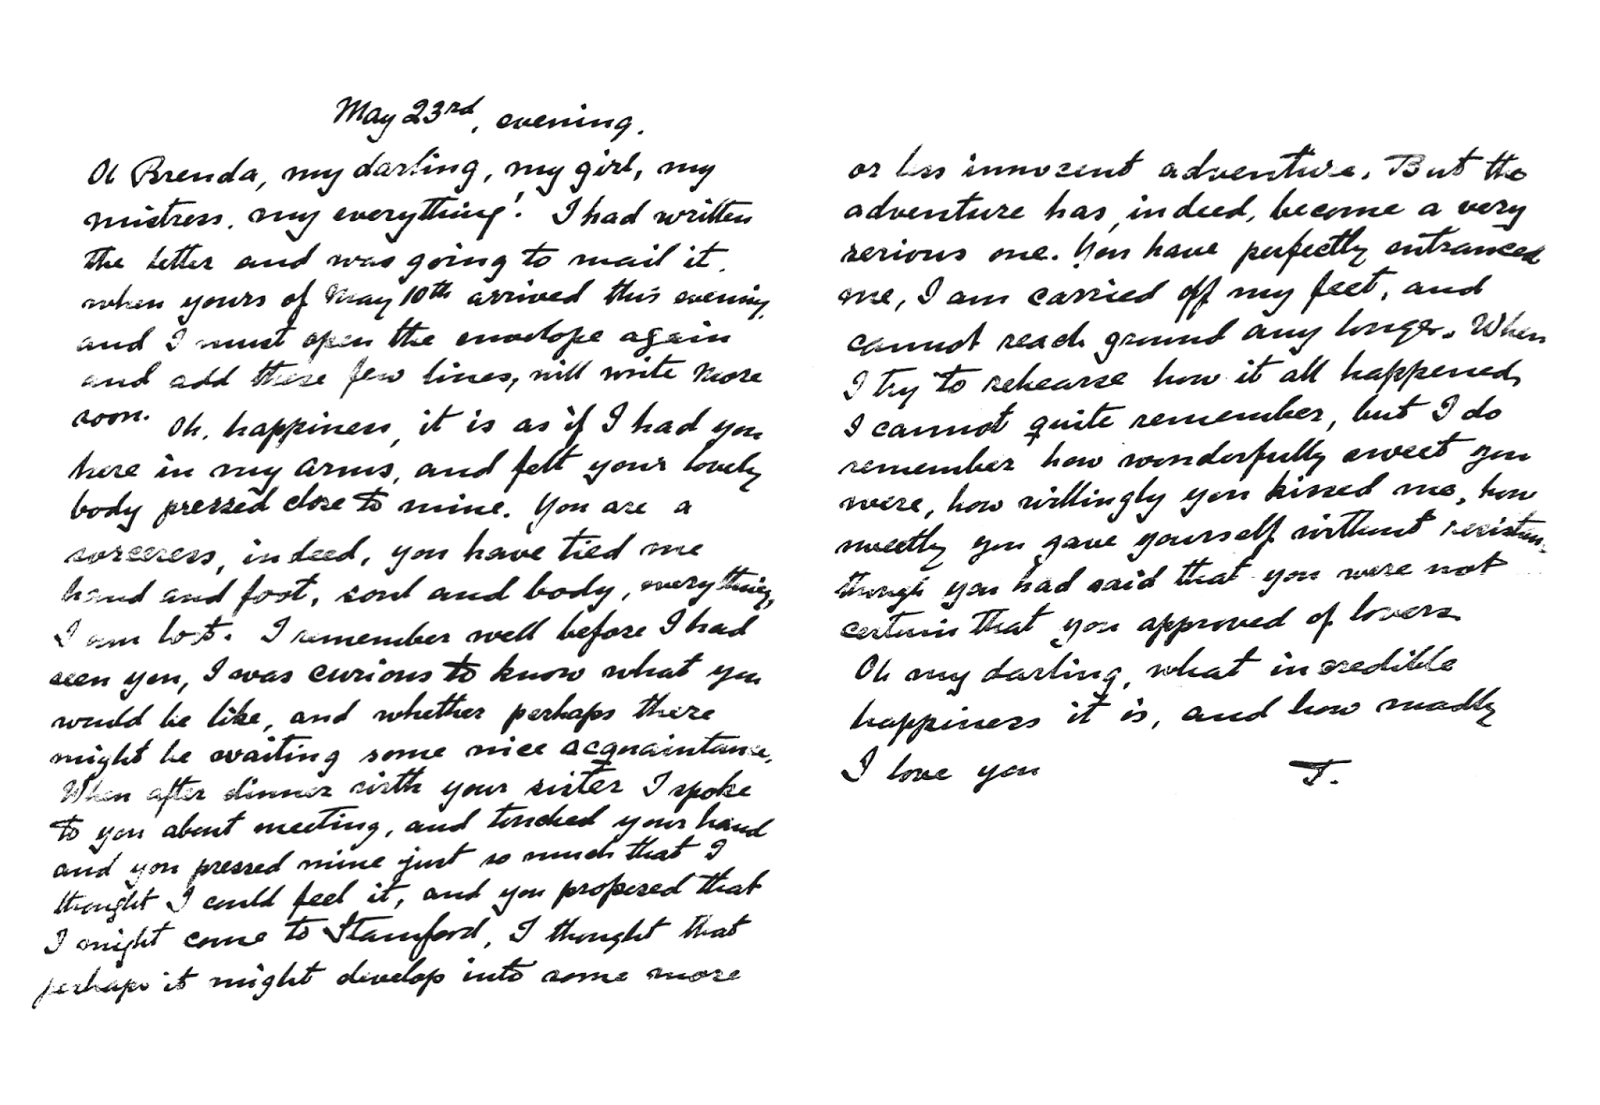 May 23rd, evening.
Oh Brenda, my darling, my girl, my
mistress, my everything! I had written
the letter and was going to mail it,
when yours of May 10th arrived this evening,
and I must open the envelope again
and add these few lines, will write more
soon. Oh, happiness, it is as if I had you
here in my arms, and felt your lovely
body pressed close to mine. You are a
sorceress, indeed, you have tied me
hand and foot, soul and body, everything,
I am lost. I remember well before I had
seen you, I was curious to know what you
would be like, and whether perhaps there
might be waiting some nice acquaintance.
When after dinner with your sister I spoke
to you about meeting, and touched your hand
and you pressed mine just so much that I
thought I could feel it, and you proposed that
I might come to Stamford, I thought that
perhaps it might develop into some more
or less innocent adventure. But the
adventure has, indeed, become a very
serious one. You have perfectly entranced
me, I am carried off my feet, and
cannot reach ground any longer. When
I try to rehearse how it all happened,
I cannot quite remember, but I do
remember how wonderfully sweet you
were, how willingly you kissed me, how
sweetly you gave yourself without resistan
though you had said that you were not
certain that you approved of lovers.
Oh my darling, what incredible
happiness it is, and how madly
I love you J.